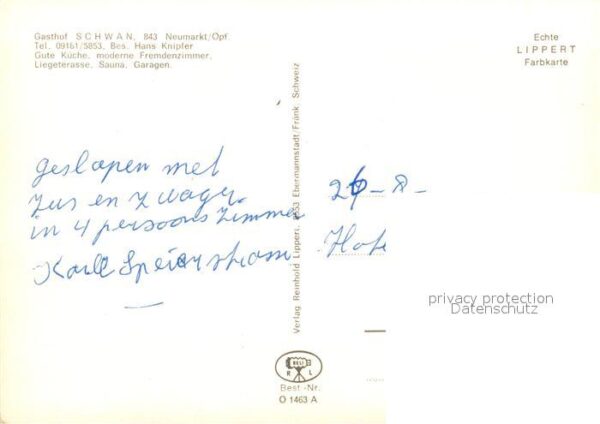 Gasthof SCHWAN, 843 Neumarkt/Opf
Tel. 09181/5853, Bes. Hans Knipfer
Gute Küche, moderne Fremdenzimmer,
Liegeterasse, Sauna, Garagen.
Echte
LIPPERT
Farbkarte
geslapen met
Zus en Zwager
in 4 persoons Zimmer
Karll
26-8-
Verlag Reinhold Lippert, 8553 Ebermannstadt/Fränk Schweiz
privacy protection
Datenschutz
R L
Best.-Nr.
O 1463 A